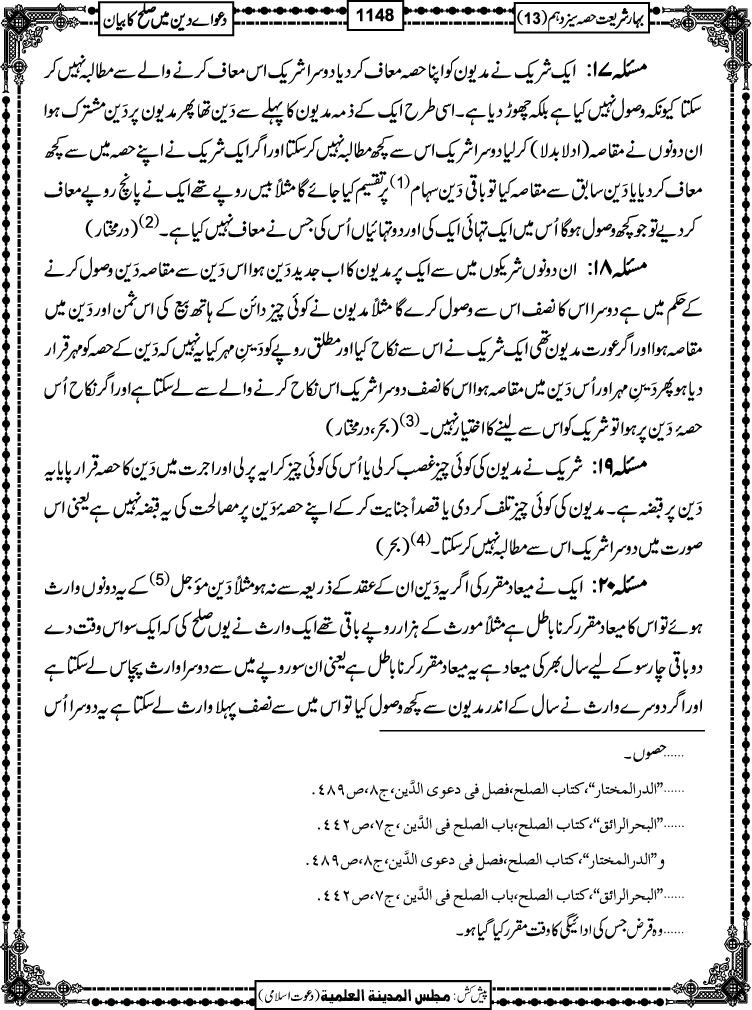 بہار شریعت حصہ سیزدہم (13)
1148
دعوائے دین میں صلح کا بیان
مسئلہ ۱۷: ایک شریک نے مدیون کو اپنا حصہ معاف کر دیا دوسرا شریک اس معاف کرنے والے سے مطالبہ نہیں کر
سکتا کیونکہ وصول نہیں کیا ہے بلکہ چھوڑ دیا ہے۔ اسی طرح ایک کے ذمہ مدیون کا پہلے سے دَین تھا پھر مدیون پر دَین مشترک ہوا
ان دونوں نے مقاصہ (ادلا بدلا) کر لیا دوسرا شریک اس سے کچھ مطالبہ نہیں کر سکتا اور اگر ایک شریک نے اپنے حصہ میں سے کچھ
معاف کر دیا یا دَین سابق سے مقاصہ کیا تو باقی دَین سہام (1) پر تقسیم کیا جائے گا مثلاً بیس روپے تھے ایک نے پانچ روپے معاف
کر دیے تو جو کچھ وصول ہوگا اُس میں ایک تہائی ایک کی اور دو تہائیاں اُس کی جس نے معاف نہیں کیا ہے۔ (2) (درمختار)
مسئلہ ۱۸: ان دونوں شریکوں میں سے ایک پر مدیون کا اب جدید دَین ہوا اس دَین سے مقاصہ دَین وصول کرنے
کے حکم میں ہے دوسرا اس کا نصف اس سے وصول کرے گا مثلاً مدیون نے کوئی چیز دائن کے ہاتھ بیع کی اس ثمن اور دَین میں
مقاصہ ہوا اور اگر عورت مدیون تھی ایک شریک نے اس سے نکاح کیا اور مطلق روپے کو دَینِ مہر کیا یہ نہیں کہ دَین کے حصہ کو مہر قرار
دیا ہو پھر دَینِ مہر اور اُس دَین میں مقاصہ ہوا اس کا نصف دوسرا شریک اس نکاح کرنے والے سے لے سکتا ہے اور اگر نکاح اُس
حصۂ دَین پر ہوا تو شریک کو اس سے لینے کا اختیار نہیں۔ (3) (بحر، درمختار)
مسئلہ ۱۹: شریک نے مدیون کی کوئی چیز غصب کر لی یا اُس کی کوئی چیز کرایہ پر لی اور اجرت میں دَین کا حصہ قرار پایا یہ
دَین پر قبضہ ہے۔ مدیون کی کوئی چیز تلف کر دی یا قصداً جنایت کر کے اپنے حصۂ دَین پر مصالحت کی یہ قبضہ نہیں ہے یعنی اس
صورت میں دوسرا شریک اس سے مطالبہ نہیں کر سکتا۔ (4) (بحر)
مسئلہ ۲۰: ایک نے میعاد مقرر کی اگر یہ دَین ان کے عقد کے ذریعہ سے نہ ہو مثلاً دَین مؤجل (5) کے یہ دونوں وارث
ہوئے تو اس کا میعاد مقرر کرنا باطل ہے مثلاً مورث کے ہزار روپے باقی تھے ایک وارث نے یوں صلح کی کہ ایک سو اس وقت دے
دو باقی چار سو کے لیے سال بھر کی میعاد ہے یہ میعاد مقرر کرنا باطل ہے یعنی ان سو روپے میں سے دوسرا وارث پچاس لے سکتا ہے
اور اگر دوسرے وارث نے سال کے اندر مدیون سے کچھ وصول کیا تو اس میں سے نصف پہلا وارث لے سکتا ہے یہ دوسرا اُس
......حصوں ۔
......”الدرالمختار“، کتاب الصلح، فصل فی دعوی الدَّین، ج۸، ص۴۸۹.
......”البحرالرائق“، کتاب الصلح، باب الصلح فی الدَّین، ج۷، ص۴۴۲.
و ”الدرالمختار“، کتاب الصلح، فصل فی دعوی الدَّین، ج۸، ص۴۸۹.
......”البحرالرائق“، کتاب الصلح، باب الصلح فی الدَّین، ج۷، ص۴۴۲.
......وہ قرض جس کی ادائیگی کا وقت مقرر کیا گیا ہو۔
پیش کش: مجلس المدینة العلمیة (دعوت اسلامی)